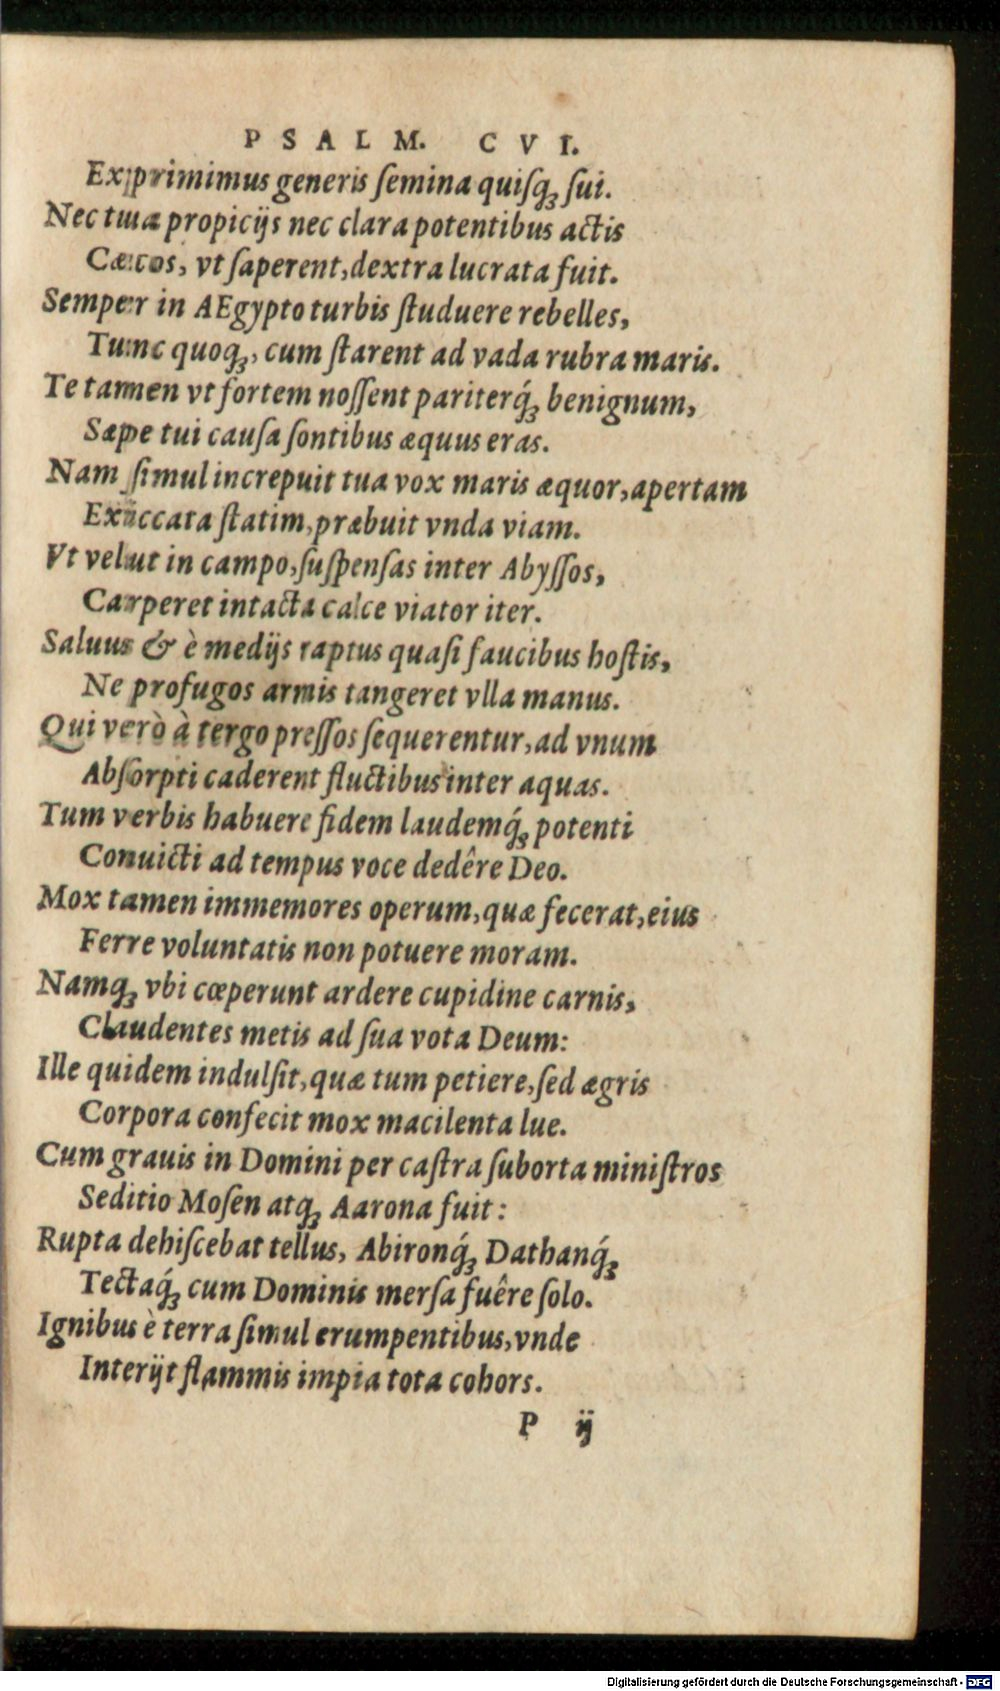 PSALM. CVI.
Exprimimus generis ſemina quiſq́ꝫ ſui.
Nec tua propicijs nec clara potentibus actis
Cæcos, vt ſaperent, dextra lucrata fuit.
Semper in AEgypto turbis ſtuduere rebelles,
Tunc quoqꝫ, cum ſtarent ad vada rubra maris.
Te tamen vt fortem noſſent pariterq́ꝫ benignum,
Sæpe tui cauſa ſontibus æquus eras.
Nam ſimul increpuit tua vox maris æquor, apertam
Exiccata ſtatim, præbuit vnda viam.
Vt velut in campo, ſuſpenſas inter Abyſſos,
Carperet intacta calce viator iter.
Saluus & è medijs raptus quaſi faucibus hoſtis,
Ne profugos armis tangeret vlla manus.
Qui verò à tergo preſſos ſequerentur, ad vnum
Abſorpti caderent fluctibus inter aquas.
Tum verbis habuere fidem laudemq́ꝫ potenti
Conuicti ad tempus voce dedêre Deo.
Mox tamen immemores operum, quæ fecerat, eius
Ferre voluntatis non potuere moram.
Namqꝫ vbi cœperunt ardere cupidine carnis,
Claudentes metis ad ſua vota Deum:
Ille quidem indulſit, quæ tum petiere, ſed ægris
Corpora confecit mox macilenta lue.
Cum grauis in Domini per caſtra ſuborta miniſtros
Seditio Moſen atqꝫ Aarona fuit:
Rupta dehiſcebat tellus, Abironq́ꝫ Dathanq́ꝫ
Tectaq́ꝫ cum Dominis merſa fuêre ſolo.
Ignibus è terra ſimul erumpentibus, vnde
Interijt flammis impia tota cohors.
P ij
Digitalisierung gefördert durch die Deutsche Forschungsgemeinschaft - DFG